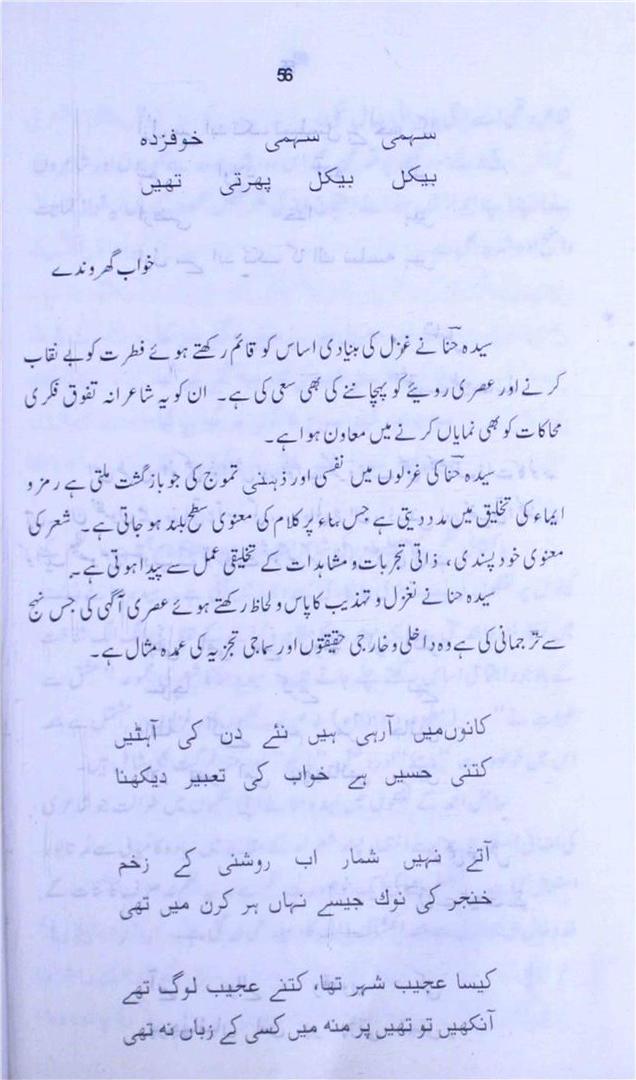 56
سہمی سہمی خوفزدہ
بیکل بیکل پھرتی تھیں
خواب گھروندے
سیدہ حنا نے غزل کی بنیادی اساس کو قائم رکھتے ہوئے فطرت کو بے نقاب
کرنے اور عصری رویئے کو پہچاننے کی بھی سعی کی ہے۔ ان کو یہ شاعرانہ تفوق فکری
محاکات کو بھی نمایاں کرنے میں معاون ہوا ہے۔
سیدہ حنا کی غزلوں میں نفسی اور ذہنی تموج کی جو بازگشت ملتی ہے رمز و
ایماء کی تخلیق میں مدد دیتی ہے جس بناء پر کلام کی معنوی سطح بلند ہو جاتی ہے۔ شعر کی
معنوی خود پسندی، ذاتی تجربات و مشاہدات کے تخلیقی عمل سے پیدا ہوتی ہے۔
سیدہ حنا نے تغزل و تہذیب کا پاس و لحاظ رکھتے ہوئے عصری آگہی کی جس نہج
سے ترجمانی کی ہے وہ داخلی و خارجی حقیقتوں اور سماجی تجزیہ کی عمدہ مثال ہے۔
کانوں میں آرہی ہیں نئے دن کی آہٹیں
کتنی حسیں ہے خواب کی تعبیر دیکھنا
آتے نہیں شمار اب روشنی کے زخم
خنجر کی نوک جیسے نہاں ہر کرن میں تھی
کیسا عجیب شہر تھا، کتنے عجیب لوگ تھے
آنکھیں تو تھیں پر منہ میں کسی کے زباں نہ تھی